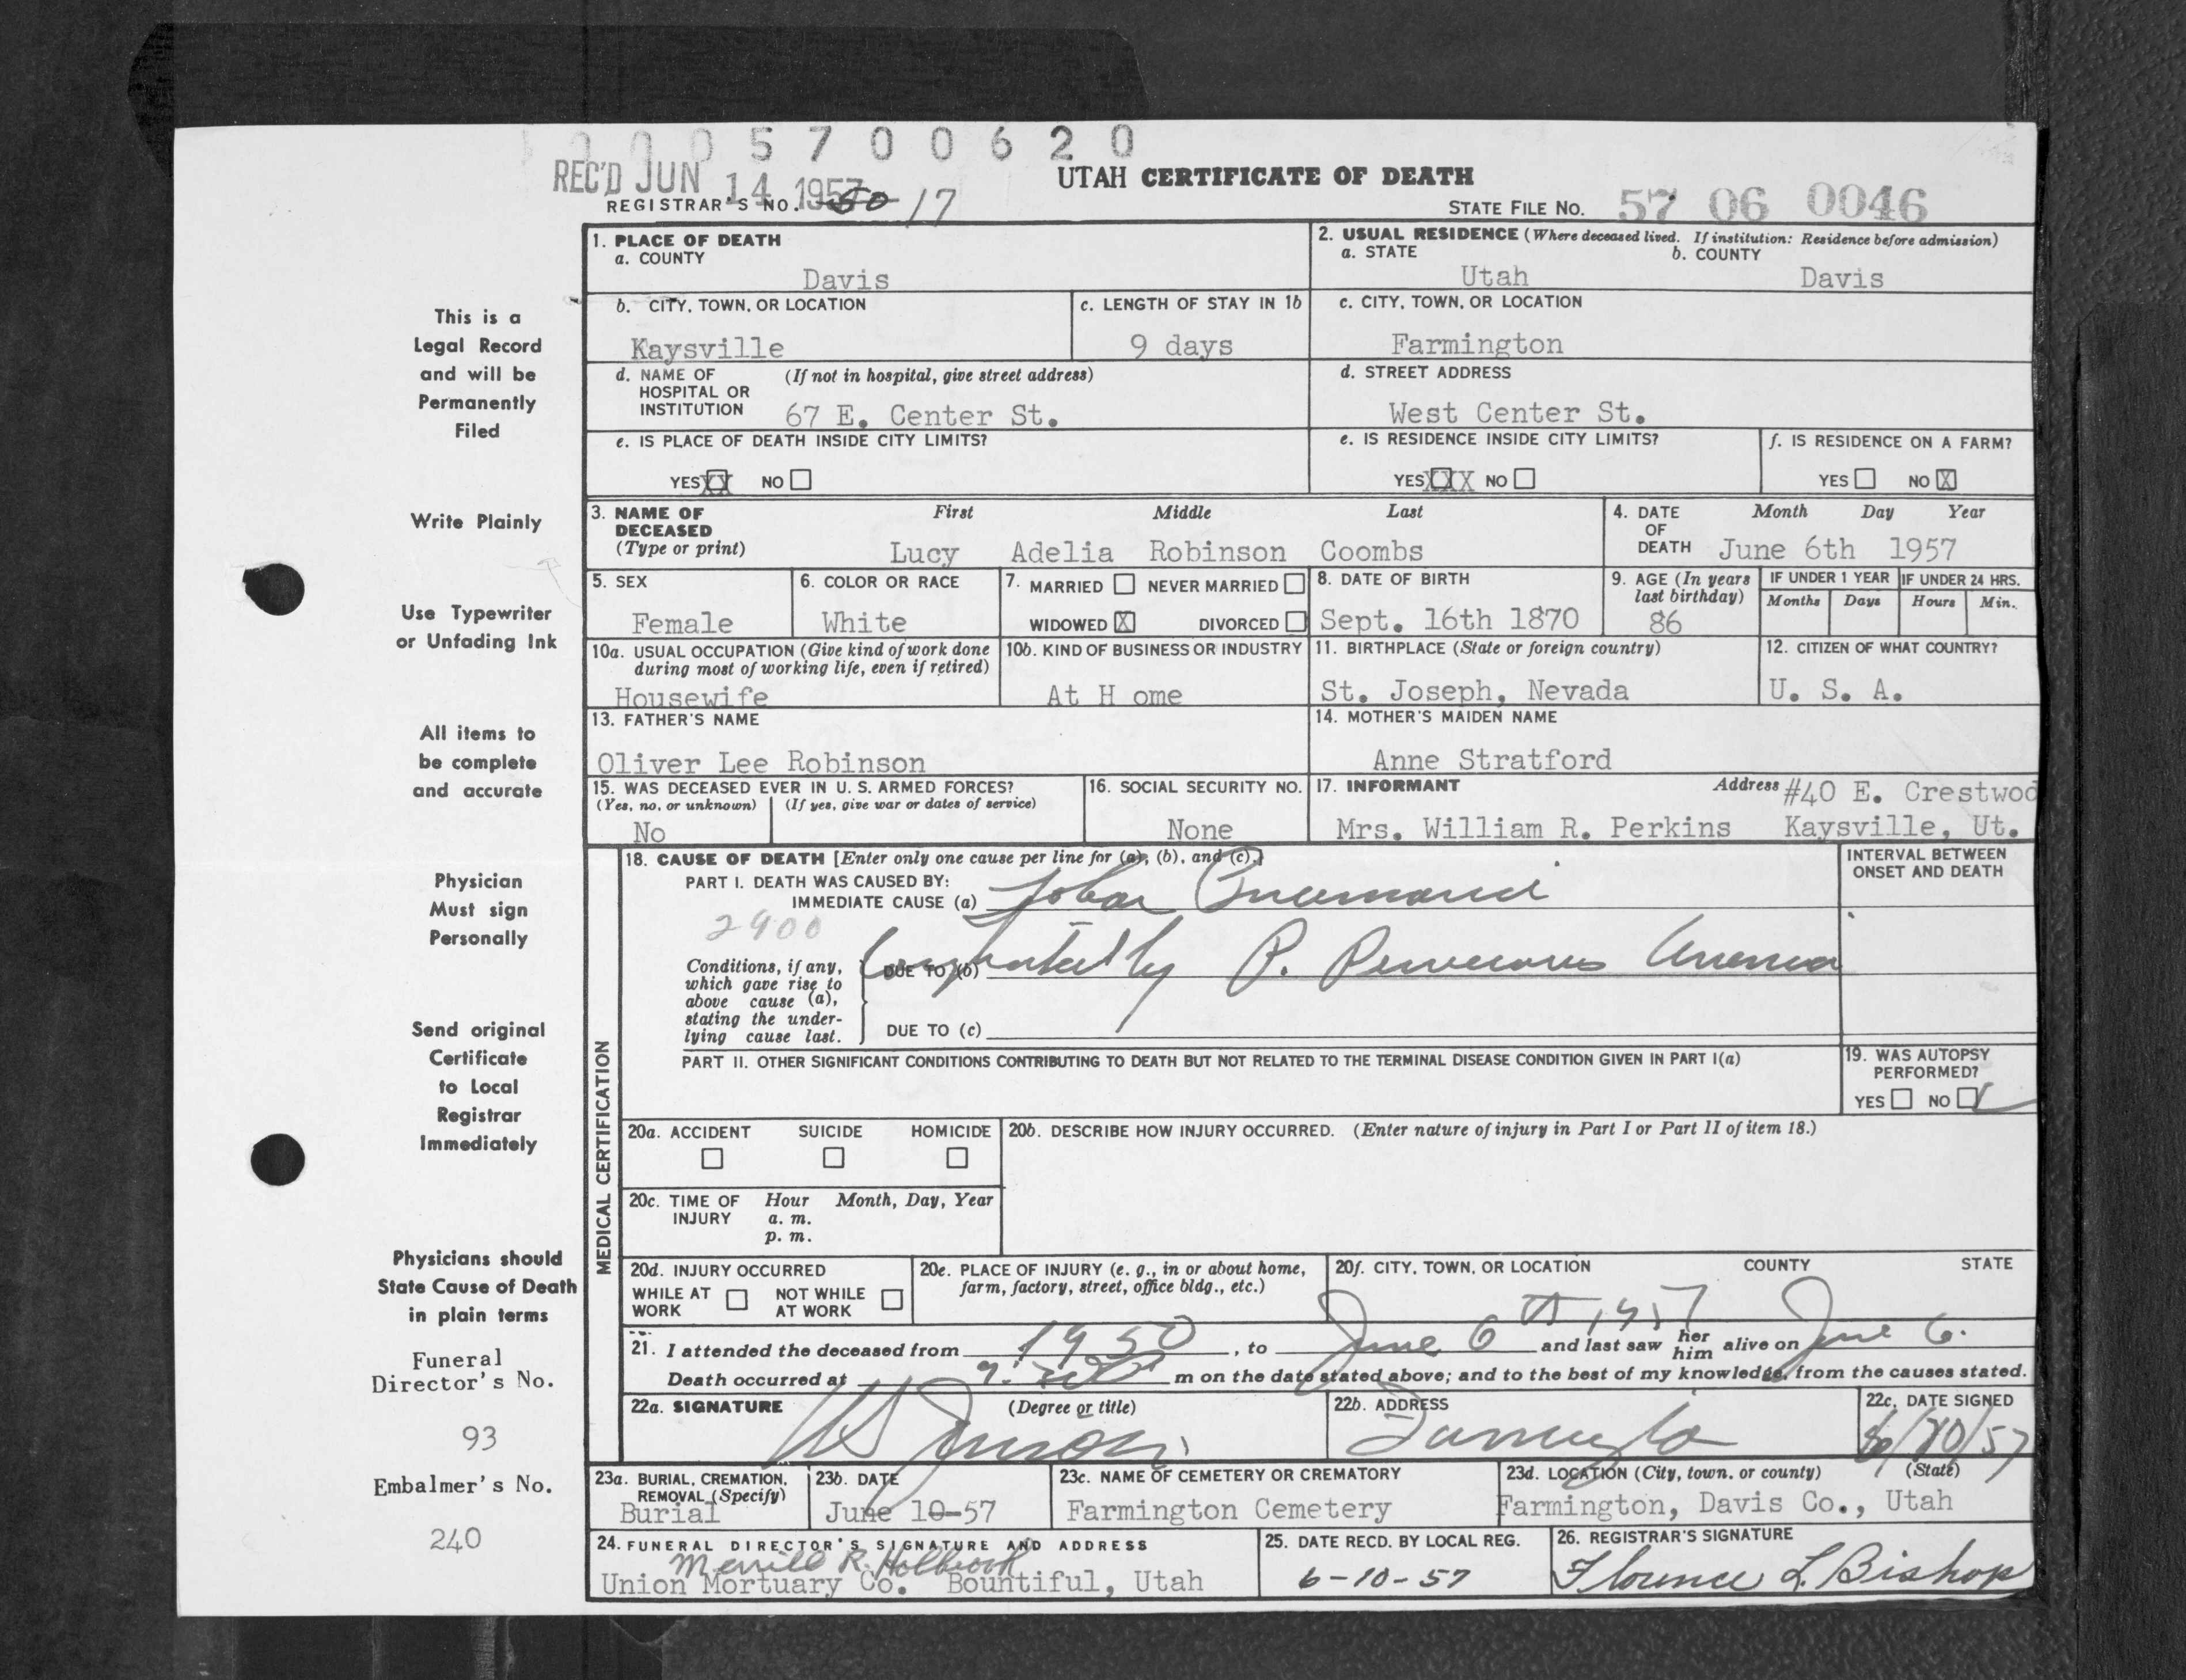 0 0 0 5 7 0 0 6 2 0
REC'D JUN 14 1957
UTAH CERTIFICATE OF DEATH
REGISTRAR'S NO. 50 17
STATE FILE NO. 57 06 0046
This is a
Legal Record
and will be
Permanently
Filed
Write Plainly
Use Typewriter
or Unfading Ink
All items to
be complete
and accurate
Physician
Must sign
Personally
Send original
Certificate
to Local
Registrar
Immediately
Physicians should
State Cause of Death
in plain terms
Funeral
Director's No.
93
Embalmer's No.
240
1. PLACE OF DEATH
a. COUNTY
Davis
2. USUAL RESIDENCE (Where deceased lived. If institution: Residence before admission)
a. STATE b. COUNTY
Utah Davis
b. CITY, TOWN, OR LOCATION
Kaysville
c. LENGTH OF STAY IN 1b
9 days
c. CITY, TOWN, OR LOCATION
Farmington
d. NAME OF (If not in hospital, give street address)
HOSPITAL OR
INSTITUTION 67 E. Center St.
d. STREET ADDRESS
West Center St.
e. IS PLACE OF DEATH INSIDE CITY LIMITS?
YES XX NO
e. IS RESIDENCE INSIDE CITY LIMITS?
YES XXX NO
f. IS RESIDENCE ON A FARM?
YES NO X
3. NAME OF First Middle Last
DECEASED
(Type or print) Lucy Adelia Robinson Coombs
4. DATE Month Day Year
OF
DEATH June 6th 1957
5. SEX
Female
6. COLOR OR RACE
White
7. MARRIED NEVER MARRIED
WIDOWED X DIVORCED
8. DATE OF BIRTH
Sept. 16th 1870
9. AGE (In years
last birthday)
86
IF UNDER 1 YEAR IF UNDER 24 HRS.
Months Days Hours Min.
10a. USUAL OCCUPATION (Give kind of work done
during most of working life, even if retired)
Housewife
10b. KIND OF BUSINESS OR INDUSTRY
At H ome
11. BIRTHPLACE (State or foreign country)
St. Joseph, Nevada
12. CITIZEN OF WHAT COUNTRY?
U. S. A.
13. FATHER'S NAME
Oliver Lee Robinson
14. MOTHER'S MAIDEN NAME
Anne Stratford
15. WAS DECEASED EVER IN U. S. ARMED FORCES?
(Yes, no, or unknown) (If yes, give war or dates of service)
No
16. SOCIAL SECURITY NO.
None
17. INFORMANT Address #40 E. Crestwood
Mrs. William R. Perkins Kaysville, Ut.
MEDICAL CERTIFICATION
18. CAUSE OF DEATH [Enter only one cause per line for (a), (b), and (c).]
PART I. DEATH WAS CAUSED BY:
IMMEDIATE CAUSE (a) Lobar Pneumonia
2900
Conditions, if any,
which gave rise to
above cause (a),
stating the under-
lying cause last.
DUE TO (b) Complicated by P. Pernicious Anemia
DUE TO (c)
INTERVAL BETWEEN
ONSET AND DEATH
PART II. OTHER SIGNIFICANT CONDITIONS CONTRIBUTING TO DEATH BUT NOT RELATED TO THE TERMINAL DISEASE CONDITION GIVEN IN PART I(a)
19. WAS AUTOPSY
PERFORMED?
YES NO
20a. ACCIDENT SUICIDE HOMICIDE
20b. DESCRIBE HOW INJURY OCCURRED. (Enter nature of injury in Part I or Part II of item 18.)
20c. TIME OF Hour Month, Day, Year
INJURY a. m.
p. m.
20d. INJURY OCCURRED
WHILE AT NOT WHILE
WORK AT WORK
20e. PLACE OF INJURY (e. g., in or about home,
farm, factory, street, office bldg., etc.)
20f. CITY, TOWN, OR LOCATION COUNTY STATE
21. I attended the deceased from 1950, to June 6th, 1957 and last saw her him alive on June 6.
Death occurred at m on the date stated above; and to the best of my knowledge, from the causes stated.
22a. SIGNATURE (Degree or title)
22b. ADDRESS
Farmington
22c. DATE SIGNED
6/10/57
23a. BURIAL, CREMATION,
REMOVAL (Specify)
Burial
23b. DATE
June 10-57
23c. NAME OF CEMETERY OR CREMATORY
Farmington Cemetery
23d. LOCATION (City, town, or county) (State)
Farmington, Davis Co., Utah
24. FUNERAL DIRECTOR'S SIGNATURE AND ADDRESS
Merrill R. Holbrook
Union Mortuary Co. Bountiful, Utah
25. DATE RECD. BY LOCAL REG.
6-10-57
26. REGISTRAR'S SIGNATURE
Florence L. Bishop